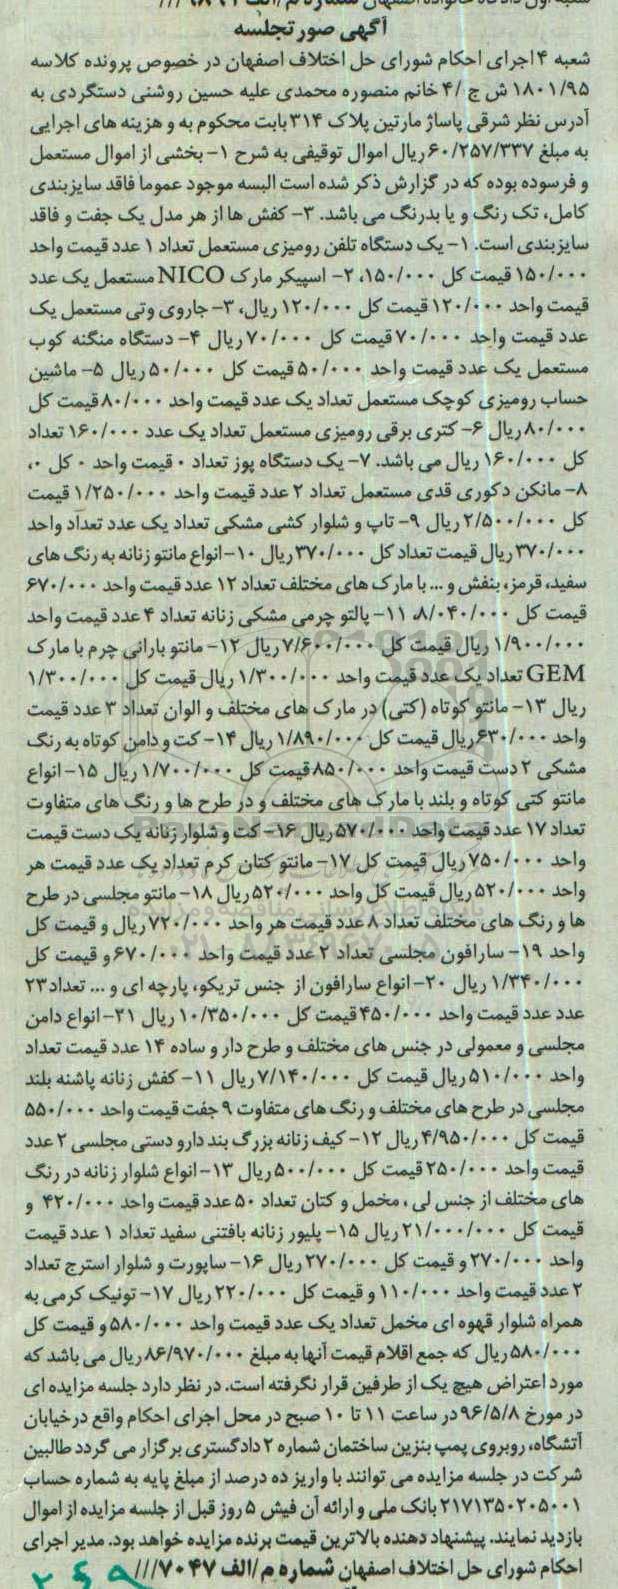 آگهی صورتجلسه
شعبه ۴ اجرای احکام شورای حل اختلاف اصفهان در خصوص پرونده کلاسه
۱۸۰۱/۹۵ ش ج /۴ خانم منصوره محمدی علیه حسین روشنی دستگردی به
آدرس نظر شرقی پاساژ مارتین پلاک ۳۱۴ بابت محکوم به و هزینه های اجرایی
به مبلغ ۶۰/۲۵۷/۳۳۷ ریال اموال توقیفی به شرح ۱- بخشی از اموال مستعمل
و فرسوده بوده که در گزارش ذکر شده است البسه موجود عموما فاقد سایزبندی
کامل، تک رنگ و یا بدرنگ می باشد. ۳- کفش ها از هر مدل یک جفت و فاقد
سایزبندی است. ۱- یک دستگاه تلفن رومیزی مستعمل تعداد ۱ عدد قیمت واحد
۱۵۰/۰۰۰ قیمت کل ۱۵۰/۰۰۰، ۲- اسپیکر مارک NICO مستعمل یک عدد
قیمت واحد ۱۲۰/۰۰۰ قیمت کل ۱۲۰/۰۰۰ ریال، ۳- جاروی وتی مستعمل یک
عدد قیمت واحد ۷۰/۰۰۰ قیمت کل ۷۰/۰۰۰ ریال ۴- دستگاه منگنه کوب
مستعمل یک عدد قیمت واحد ۵۰/۰۰۰ قیمت کل ۵۰/۰۰۰ ریال ۵- ماشین
حساب رومیزی کوچک مستعمل تعداد یک عدد قیمت واحد ۸۰/۰۰۰ قیمت کل
۸۰/۰۰۰ ریال ۶- کتری برقی رومیزی مستعمل تعداد یک عدد ۱۶۰/۰۰۰ تعداد
کل ۱۶۰/۰۰۰ ریال می باشد. ۷- یک دستگاه پوز تعداد ۰ قیمت واحد ۰ کل ۰،
۸- مانکن دکوری قدی مستعمل تعداد ۲ عدد قیمت واحد ۱/۲۵۰/۰۰۰ قیمت
کل ۲/۵۰۰/۰۰۰ ریال ۹- تاپ و شلوار کشی مشکی تعداد یک عدد تعداد واحد
۳۷۰/۰۰۰ ریال قیمت تعداد کل ۳۷۰/۰۰۰ ریال ۱۰- انواع مانتو زنانه به رنگ های
سفید، قرمز، بنفش و ... با مارک های مختلف تعداد ۱۲ عدد قیمت واحد ۶۷۰/۰۰۰
قیمت کل ۸/۰۴۰/۰۰۰، ۱۱- پالتو چرمی مشکی زنانه تعداد ۴ عدد قیمت واحد
۱/۹۰۰/۰۰۰ ریال قیمت کل ۷/۶۰۰/۰۰۰ ریال ۱۲- مانتو بارانی چرم با مارک
GEM تعداد یک عدد قیمت واحد ۱/۳۰۰/۰۰۰ ریال قیمت کل ۱/۳۰۰/۰۰۰
ریال ۱۳- مانتو کوتاه (کتی) در مارک های مختلف و الوان تعداد ۳ عدد قیمت
واحد ۶۳۰/۰۰۰ ریال قیمت کل ۱/۸۹۰/۰۰۰ ریال ۱۴- کت و دامن کوتاه به رنگ
مشکی ۲ دست قیمت واحد ۸۵۰/۰۰۰ قیمت کل ۱/۷۰۰/۰۰۰ ریال ۱۵- انواع
مانتو کتی کوتاه و بلند با مارک های مختلف و در طرح ها و رنگ های متفاوت
تعداد ۱۷ عدد قیمت واحد ۵۷۰/۰۰۰ ریال ۱۶- کت و شلوار زنانه یک دست قیمت
واحد ۷۵۰/۰۰۰ ریال قیمت کل ۱۷- مانتو کتان کرم تعداد یک عدد قیمت هر
واحد ۵۲۰/۰۰۰ ریال قیمت کل واحد ۵۲۰/۰۰۰ ریال ۱۸- مانتو مجلسی در طرح
ها و رنگ های مختلف تعداد ۸ عدد قیمت هر واحد ۷۲۰/۰۰۰ ریال و قیمت کل
واحد ۱۹- سارافون مجلسی تعداد ۲ عدد قیمت واحد ۶۷۰/۰۰۰ و قیمت کل
۱/۳۴۰/۰۰۰ ریال ۲۰- انواع سارافون از جنس تریکو، پارچه ای و ... تعداد ۲۳
عدد عدد قیمت واحد ۴۵۰/۰۰۰ قیمت کل ۱۰/۳۵۰/۰۰۰ ریال ۲۱- انواع دامن
مجلسی و معمولی در جنس های مختلف و طرح دار و ساده ۱۴ عدد قیمت تعداد
واحد ۵۱۰/۰۰۰ ریال قیمت کل ۷/۱۴۰/۰۰۰ ریال ۱۱- کفش زنانه پاشنه بلند
مجلسی در طرح های مختلف و رنگ های متفاوت ۹ جفت قیمت واحد ۵۵۰/۰۰۰
قیمت کل ۴/۹۵۰/۰۰۰ ریال ۱۲- کیف زنانه بزرگ بند دار و دستی مجلسی ۲ عدد
قیمت واحد ۲۵۰/۰۰۰ قیمت کل ۵۰۰/۰۰۰ ریال ۱۳- انواع شلوار زنانه در رنگ
های مختلف از جنس لی، مخمل و کتان تعداد ۵۰ عدد قیمت واحد ۴۲۰/۰۰۰ و
قیمت کل ۲۱/۰۰۰/۰۰۰ ریال ۱۵- پلیور زنانه بافتنی سفید تعداد ۱ عدد قیمت
واحد ۲۷۰/۰۰۰ و قیمت کل ۲۷۰/۰۰۰ ریال ۱۶- ساپورت و شلوار استرج تعداد
۲ عدد قیمت واحد ۱۱۰/۰۰۰ و قیمت کل ۲۲۰/۰۰۰ ریال ۱۷- تونیک کرمی به
همراه شلوار قهوه ای مخمل تعداد یک عدد قیمت واحد ۵۸۰/۰۰۰ و قیمت کل
۵۸۰/۰۰۰ ریال که جمع اقلام قیمت آنها به مبلغ ۸۶/۹۷۰/۰۰۰ ریال می باشد که
مورد اعتراض هیچ یک از طرفین قرار نگرفته است. در نظر دارد جلسه مزایده ای
در مورخ ۹۶/۵/۸ در ساعت ۱۱ تا ۱۰ صبح در محل اجرای احکام واقع در خیابان
آتشگاه، روبروی پمپ بنزین ساختمان شماره ۲ دادگستری برگزار می گردد طالبین
شرکت در جلسه مزایده می توانند با واریز ده درصد از مبلغ پایه به شماره حساب
۲۱۷۱۳۵۰۲۰۵۰۰۱ بانک ملی و ارائه آن فیش ۵ روز قبل از جلسه مزایده از اموال
بازدید نمایند. پیشنهاد دهنده بالاترین قیمت برنده مزایده خواهد بود. مدیر اجرای
احکام شورای حل اختلاف اصفهان شماره م/الف ۷۰۴۷///
۲۶۹